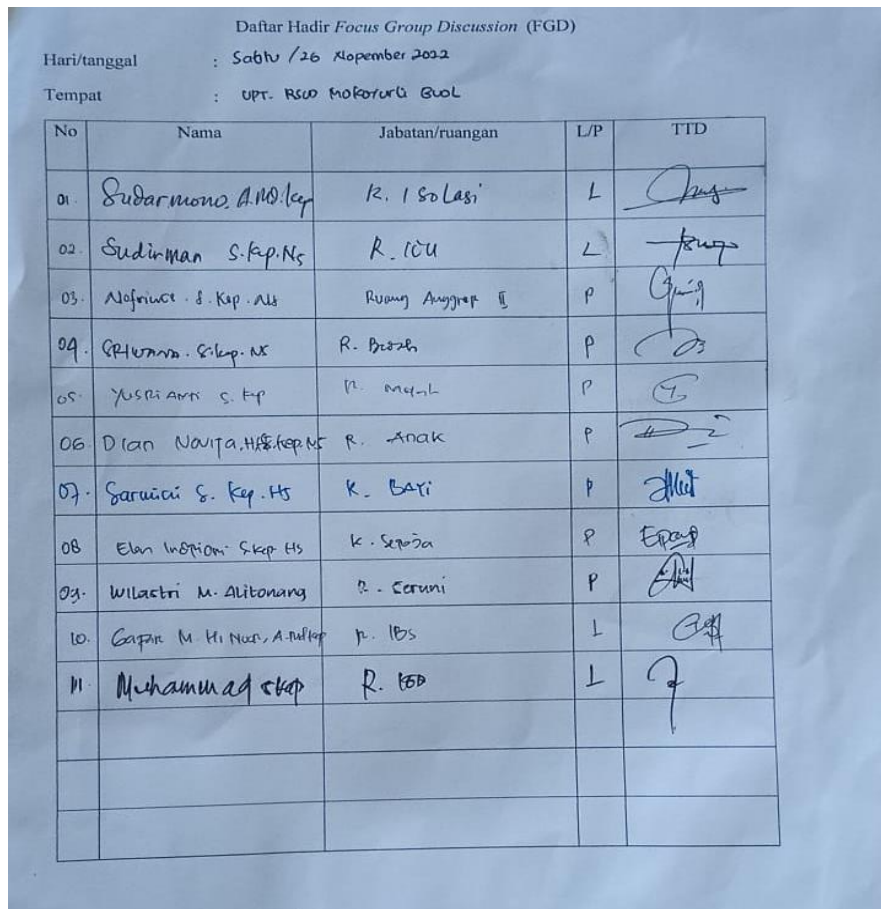 Daftar Hadir Focus Group Discussion (FGD)
Hari/tanggal : Sabtu /26 Nopember 2022
Tempat : UPT. RSUD Mokoyurli Buol
No Nama Jabatan/ruangan L/P TTD
01 Sudarmono. A.Md.kep R. Isolasi L
02. Sudirman S.Kep.Ns R. ICU L
03. Nofrince. S.Kep.Ns Ruang Anggrek II P
04. S.kep.Ns R. P
05. Yusrianti S.Kep R. P
06 Dian Novita, S.kep.Ns R. Anak P
07. S. Kep. Ns R. BAYi P
08 Elan S.Kep Ns R. P
09. Wilastri M. Alitonang R. Seruni P
10. Gafar M. Hi Nur, R. IBS L
11. Muhammad Skep R. L